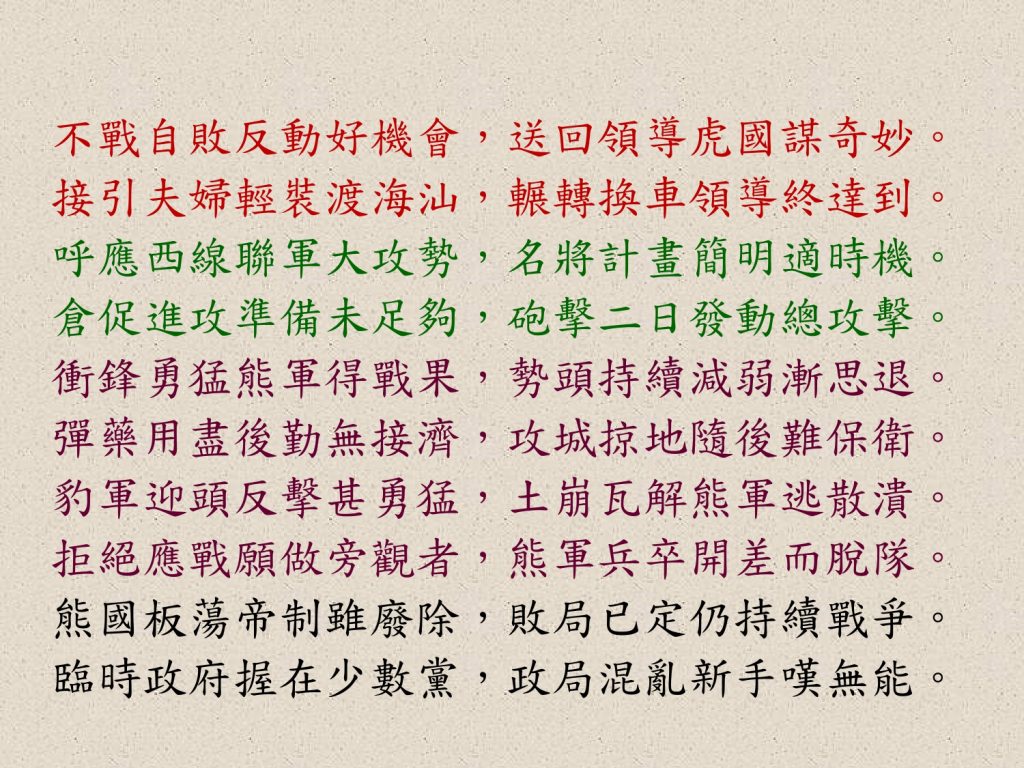 不戰自敗反動好機會，送回領導虎國謀奇妙。
接引夫婦輕裝渡海汕，輾轉換車領導終達到。
呼應西線聯軍大攻勢，名將計畫簡明適時機。
倉促進攻準備未足夠，砲擊二日發動總攻擊。
衝鋒勇猛熊軍得戰果，勢頭持續減弱漸思退。
彈藥用盡後勤無接濟，攻城掠地隨後難保衛。
豹軍迎頭反擊甚勇猛，土崩瓦解熊軍逃散潰。
拒絕應戰願做旁觀者，熊軍兵卒開差而脫隊。
熊國板蕩帝制雖廢除，敗局已定仍持續戰爭。
臨時政府握在少數黨，政局混亂新手嘆無能。